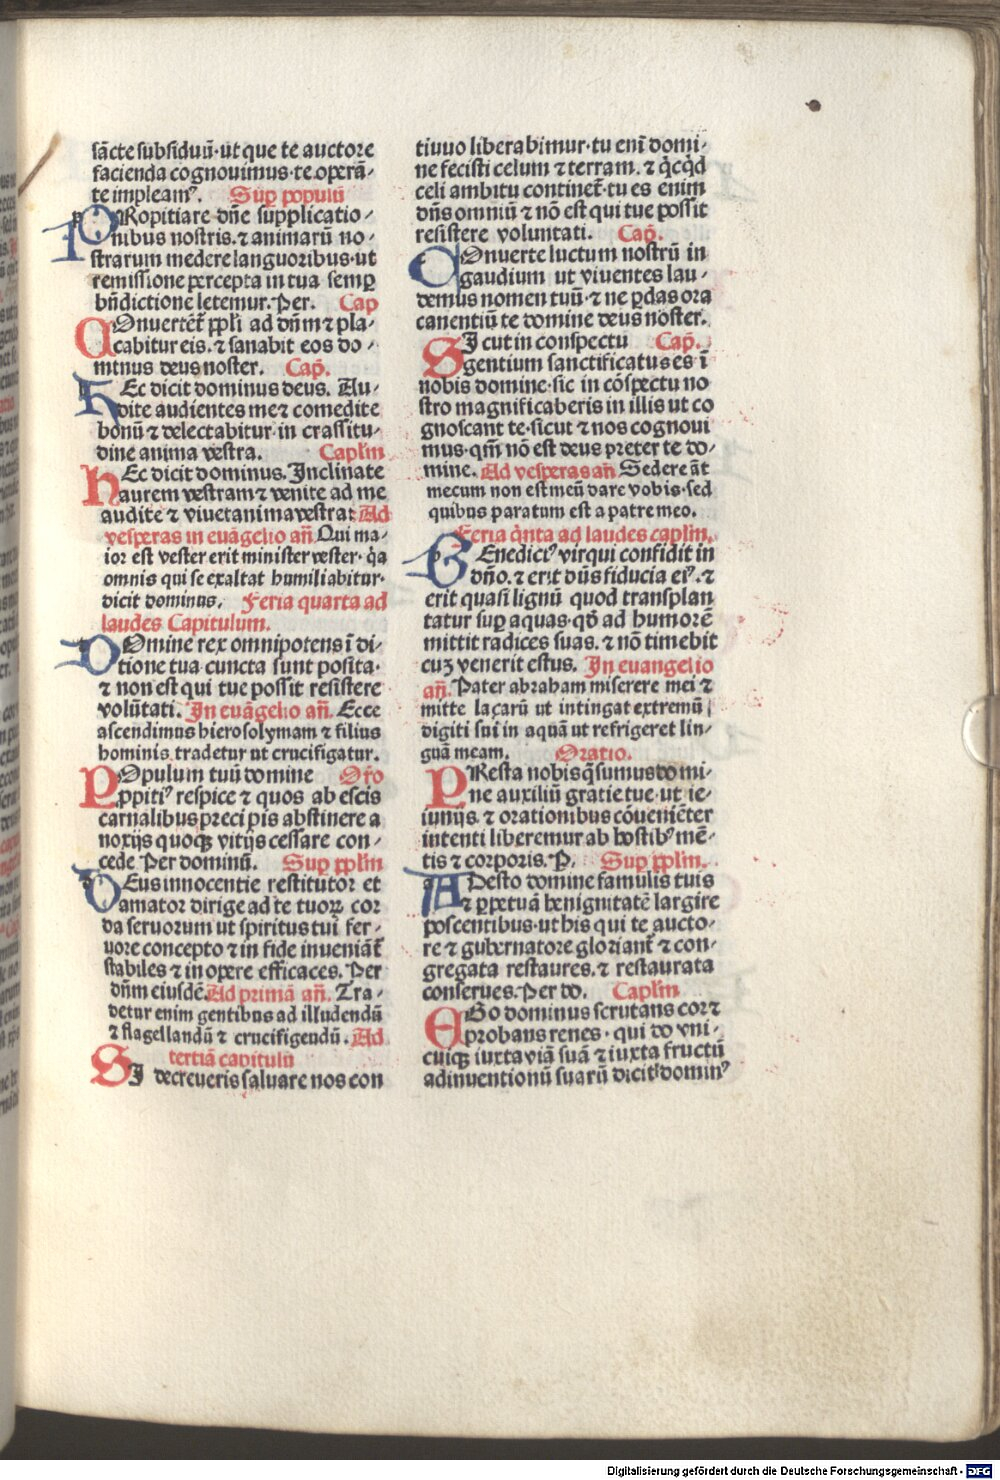 sācte subsidiuū·ut que te auctore
facienda cognouimus·te operā⸗
te impleamꝰ. Sup populū
PRopitiare dn̄e supplicatio⸗
nibus nostris.⁊ animarū no⸗
strarum medere languoribus·ut
remissione percepta in tua semp
bn̄dictione letemur. Per. Cap
COnuertēt ppl̄i ad dn̄m ⁊ pla⸗
cabitur eis.⁊ sanabit eos do⸗
minus deus noster. Cap̄.
HEc dicit dominus deus. Au⸗
dite audientes me ⁊ comedite
bonū ⁊ delectabitur·in crassitu⸗
dine anima vestra. Capl̄m
HEc dicit dominus. Inclinate
aurem vestram ⁊ venite ad me
audite ⁊ viuet anima vestra: Ad
vesperas in euāgelio an̄. Qui ma⸗
ior est vester erit minister vester·q̇a
omnis qui se exaltat humiliabitur·
dicit dominus. Feria quarta ad
laudes Capitulum.
DOmine rex omnipotens ī di⸗
tione tua cuncta sunt posita·
⁊ non est qui tue possit resistere
volūtati. In euāgelio an̄. Ecce
ascendimus hierosolymam ⁊ filius
hominis tradetur ut crucifigatur.
POpulum tuū domine Oro
ꝓpitiꝰ respice ⁊ quos ab escis
carnalibus precipis abstinere a
noxijs quoqꝫ vitijs cessare con⸗
cede Per dominū. Sup ppl̄m
DEus innocentie restitutor et
amator dirige ad te tuoꝝ cor
da seruorum ut spiritus tui fer⸗
uore concepto ⁊ in fide inueniāt̄
stabiles ⁊ in opere efficaces. Per
dn̄m eiusdē. Ad primā an̄. Tra⸗
detur enim gentibus ad illudendū
⁊ flagellandū ⁊ crucifigendū. Ad
tertiā capitulū
SI decreueris saluare nos con
tinuo liberabimur·tu enī domi⸗
ne fecisti celum ⁊ terram.⁊ q̇cq̇d
celi ambitu continet̄·tu es enim
dn̄s omniū ⁊ nō est qui tue possit
resistere voluntati. Cap̄.
COnuerte luctum nostrū in
gaudium ut viuentes lau⸗
demus nomen tuū·⁊ ne ꝑdas ora
canentiū te domine deus noster.
SIcut in conspectu Cap̄.
gentium sanctificatus es ī
nobis domine·sic in cōspectu no
stro magnificaberis in illis ut co
gnoscant te·sicut ⁊ nos cognoui
mus·qm̄ nō est deus preter te do⸗
mine. Ad vesperas an̄ Sedere āt
mecum non est meū dare vobis·sed
quibus paratum est a patre meo.
Feria q̇nta ad laudes capl̄m.
BEnedictꝰ vir qui confidit in
dn̄o.⁊ erit dn̄s fiducia eiꝰ.⁊
erit quasi lignū quod transplan
tatur suꝑ aquas·qđ ad humorē
mittit radices suas.⁊ nō timebit
cuꝫ venerit estus. In euangelio
an̄. Pater abraham miserere mei ⁊
mitte laçarū ut intingat extremū
digiti sui in aquā ut refrigeret lin⸗
guā meam. Oratio.
PResta nobis q̄sumus domi⸗
ne auxiliū gratie tue·ut ie⸗
iunijs ⁊ orationibus cōueniēter
intenti liberemur ab hostibꝰ mē⸗
tis ⁊ corporis. P. Sup ppl̄m.
ADesto domine famulis tuis
⁊ ꝑpetuā benignitatē largire
poscentibus·ut his qui te aucto⸗
re ⁊ gubernatore gloriant̄ ⁊ con⸗
gregata restaures.⁊ restaurata
conserues. Per do. Capl̄m
EGo dominus scrutans cor ⁊
probans renes·qui do vni⸗
cuiqꝫ iuxta viā suā ⁊ iuxta fructū
adinuentionū suarū dicit dominꝰ
Digitalisierung gefördert durch die Deutsche Forschungsgemeinschaft - DFG